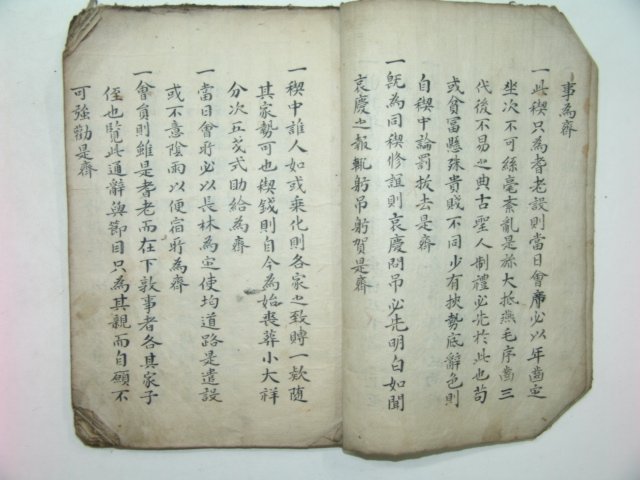 事為齊
一此稧只為耆老設則當日會席必以年齒定
坐次不可絲毫紊亂是旀大抵燕毛序齒三
代後不易之典古聖人制禮必先於此也苟
或貧冨懸珠貴賤不同少有挾勢底辭色則
自稧中論罰拔去是齊
一旣為同稧修誼則哀慶問吊必先明白如聞
哀慶之報輒躬吊躬賀是齊
一稧中誰人如或乘化則各家之致賻一欵随
其家勢可也稧錢則自今為始喪葬小大祥
分次五戔式助給為齊
一當日會所必以長林為定使均道路是遣設
或不意陰雨以便宿所為齊
一會負則雖是耆老而在下敦事者各其家子
侄也覽此通辭與節目只為其親而自願不
可強勸是齊